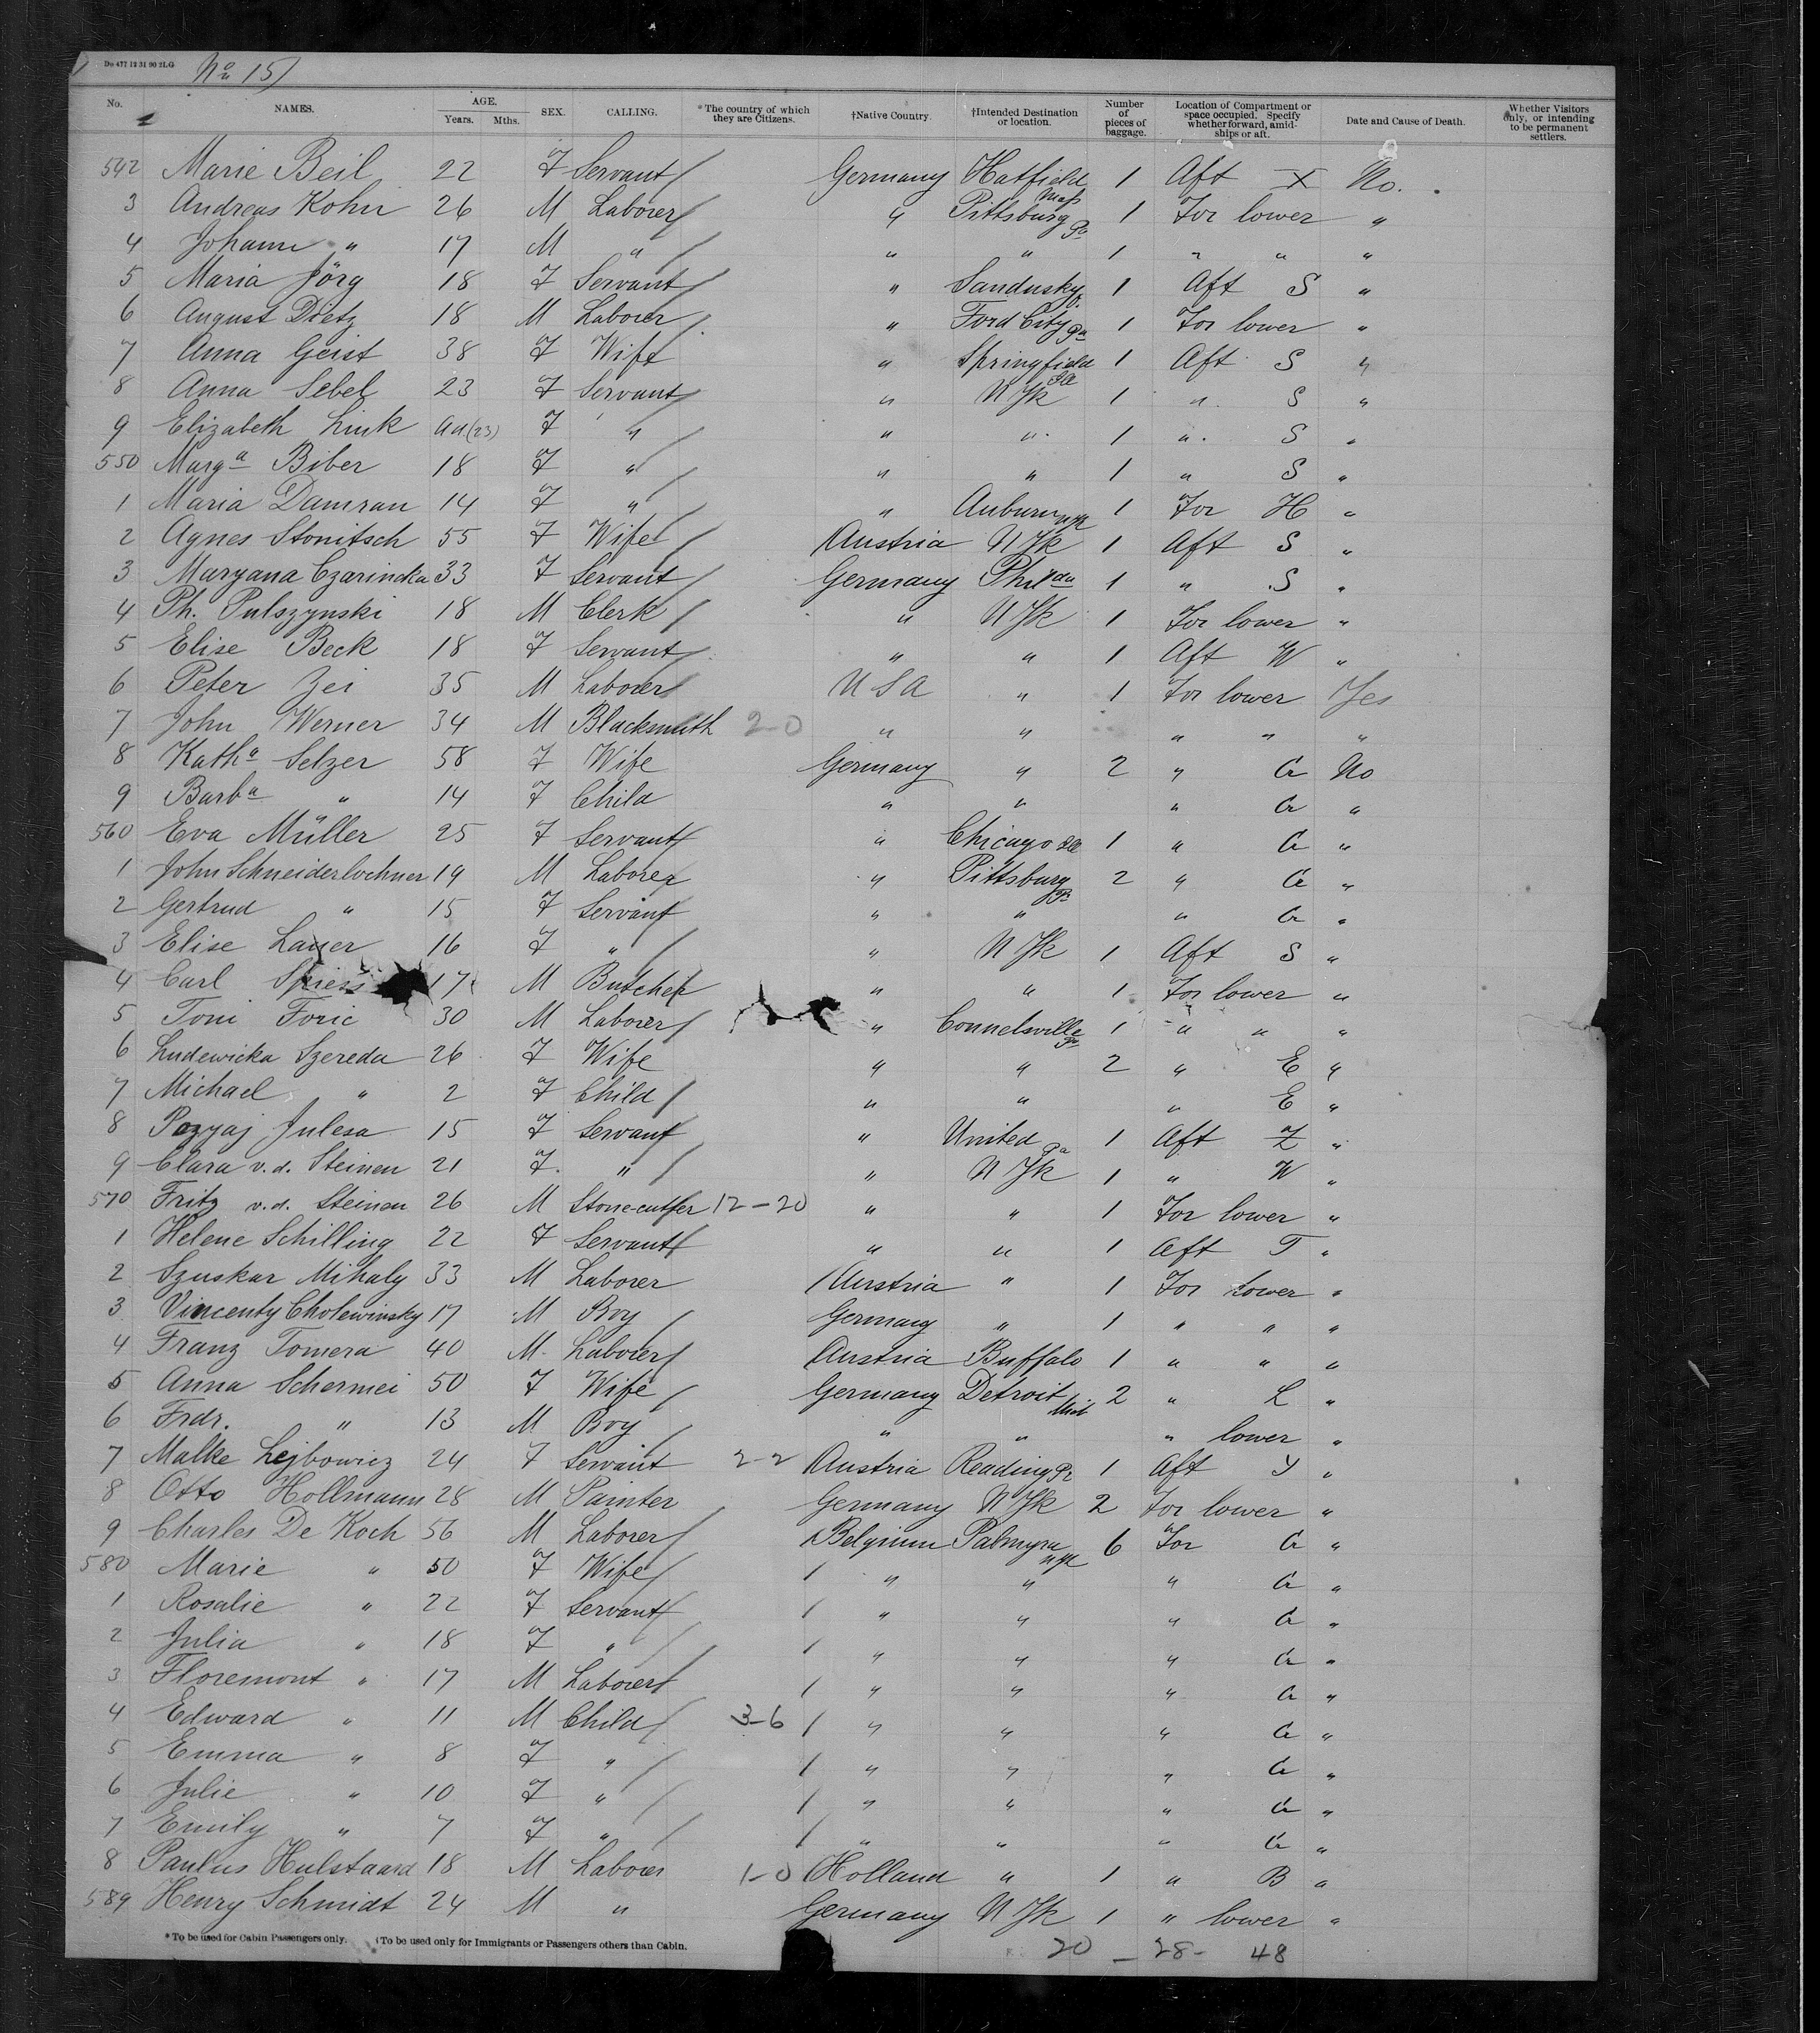 Do 477 12 31 90 2LG No 15
No. NAMES. AGE. Years. Mths. SEX. CALLING. *The country of which they are Citizens. †Native Country. †Intended Destination or location. Number of pieces of baggage. Location of Compartment or space occupied. Specify whether forward, amidships or aft. Date and Cause of Death. Whether Visitors only, or intending to be permanent settlers.
542 Marie Beil 22 F Servant Germany Hatfield Mass 1 Aft X No.
3 Andreas Kohn 26 M Laborer " Pittsburg Pa 1 For lower "
4 Johann " 17 M " " " 1 " " "
5 Maria Jörg 18 F Servant " Sandusky O. 1 Aft S "
6 August Dietz 18 M Laborer " Ford City Pa 1 For lower "
7 Anna Geist 38 F Wife " Springfield Ill 1 Aft S "
8 Anna Sebel 23 F Servant " N Yk 1 " S "
9 Elizabeth Link ad (23) F " " " 1 " S "
550 Marga Biber 18 F " " " 1 " S "
1 Maria Damrau 14 F " " Auburn NYk 1 For H "
2 Agnes Stonitsch 55 F Wife Austria N Yk 1 Aft S "
3 Maryana Czarincka 33 F Servant Germany Philada 1 " S "
4 Ph. Pulszynski 18 M Clerk " N Yk 1 For lower "
5 Elise Beck 18 F Servant " " 1 Aft W "
6 Peter Zei 35 M Laborer U S A " 1 For lower Yes
7 John Werner 34 M Blacksmith 2-0 " " " " "
8 Katha Selzer 58 F Wife Germany " 2 " G No
9 Barba " 14 F Child " " " G "
560 Eva Müller 25 F Servant " Chicago Ill 1 " G "
1 John Schneiderlochner 19 M Laborer " Pittsburg Pa 2 " G "
2 Gertrud " 15 F Servant " " " G "
3 Elise Lauer 16 F " " N Yk 1 Aft S "
4 Carl Spiess 17 M Butcher " " 1 For lower "
5 Toni Foric 30 M Laborer " Connelsville Pa 1 " " "
6 Ludewicka Szereda 26 F Wife " " 2 " E "
7 Michael " 2 F Child " " " E "
8 Pozyaj Julesa 15 F Servant " United Pa 1 Aft Z "
9 Clara v. d. Steinen 21 F " " N Yk 1 " W "
570 Fritz v. d. Steinen 26 M Stone-cutter 12-20 " " 1 For lower "
1 Helene Schilling 22 F Servant " " 1 Aft T "
2 Szuskar Mihaly 33 M Laborer Austria " 1 For lower "
3 Vincenty Cholewinsky 17 M Boy Germany " 1 " " "
4 Franz Tomera 40 M Laborer Austria Buffalo 1 " " "
5 Anna Schermei 50 F Wife Germany Detroit Mich 2 " L "
6 Frdr. " 13 M Boy " " " lower "
7 Malke Lejbowicz 24 F Servant 2-2 Austria Reading Pa 1 Aft Y "
8 Otto Hollmann 28 M Painter Germany N Yk 2 For lower "
9 Charles De Koch 56 M Laborer Belgium Palmyra NYk 6 For G "
580 Marie " 50 F Wife " " " G "
1 Rosalie " 22 F Servant " " " G "
2 Julia " 18 F " " " " G "
3 Floremont " 17 M Laborer " " " G "
4 Edward " 11 M Child 3-6 " " " G "
5 Emma " 8 F " " " " G "
6 Julie " 10 F " " " " G "
7 Emily " 7 F " " " " G "
8 Paulus Hulstaard 18 M Laborer 1-0 Holland " 1 " B "
589 Henry Schmidt 24 M " Germany N Yk 1 " lower "
*To be used for Cabin Passengers only. †To be used only for Immigrants or Passengers others than Cabin.
20 - 28 - 48